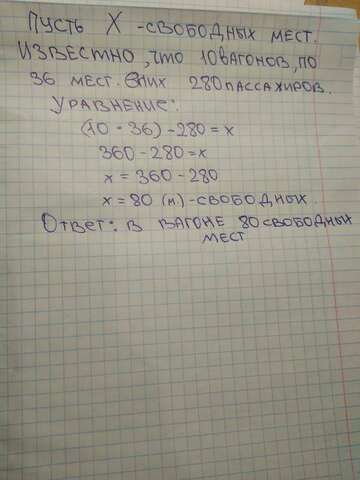 Пусть X - свободных мест.
Известно, что 10 вагонов, по
36 мест. В них 280 пассажиров.
Уравнение:
(10 · 36) - 280 = x
360 - 280 = x
x = 360 - 280
x = 80 (м.) - свободных.
Ответ: в вагоне 80 свободных
мест